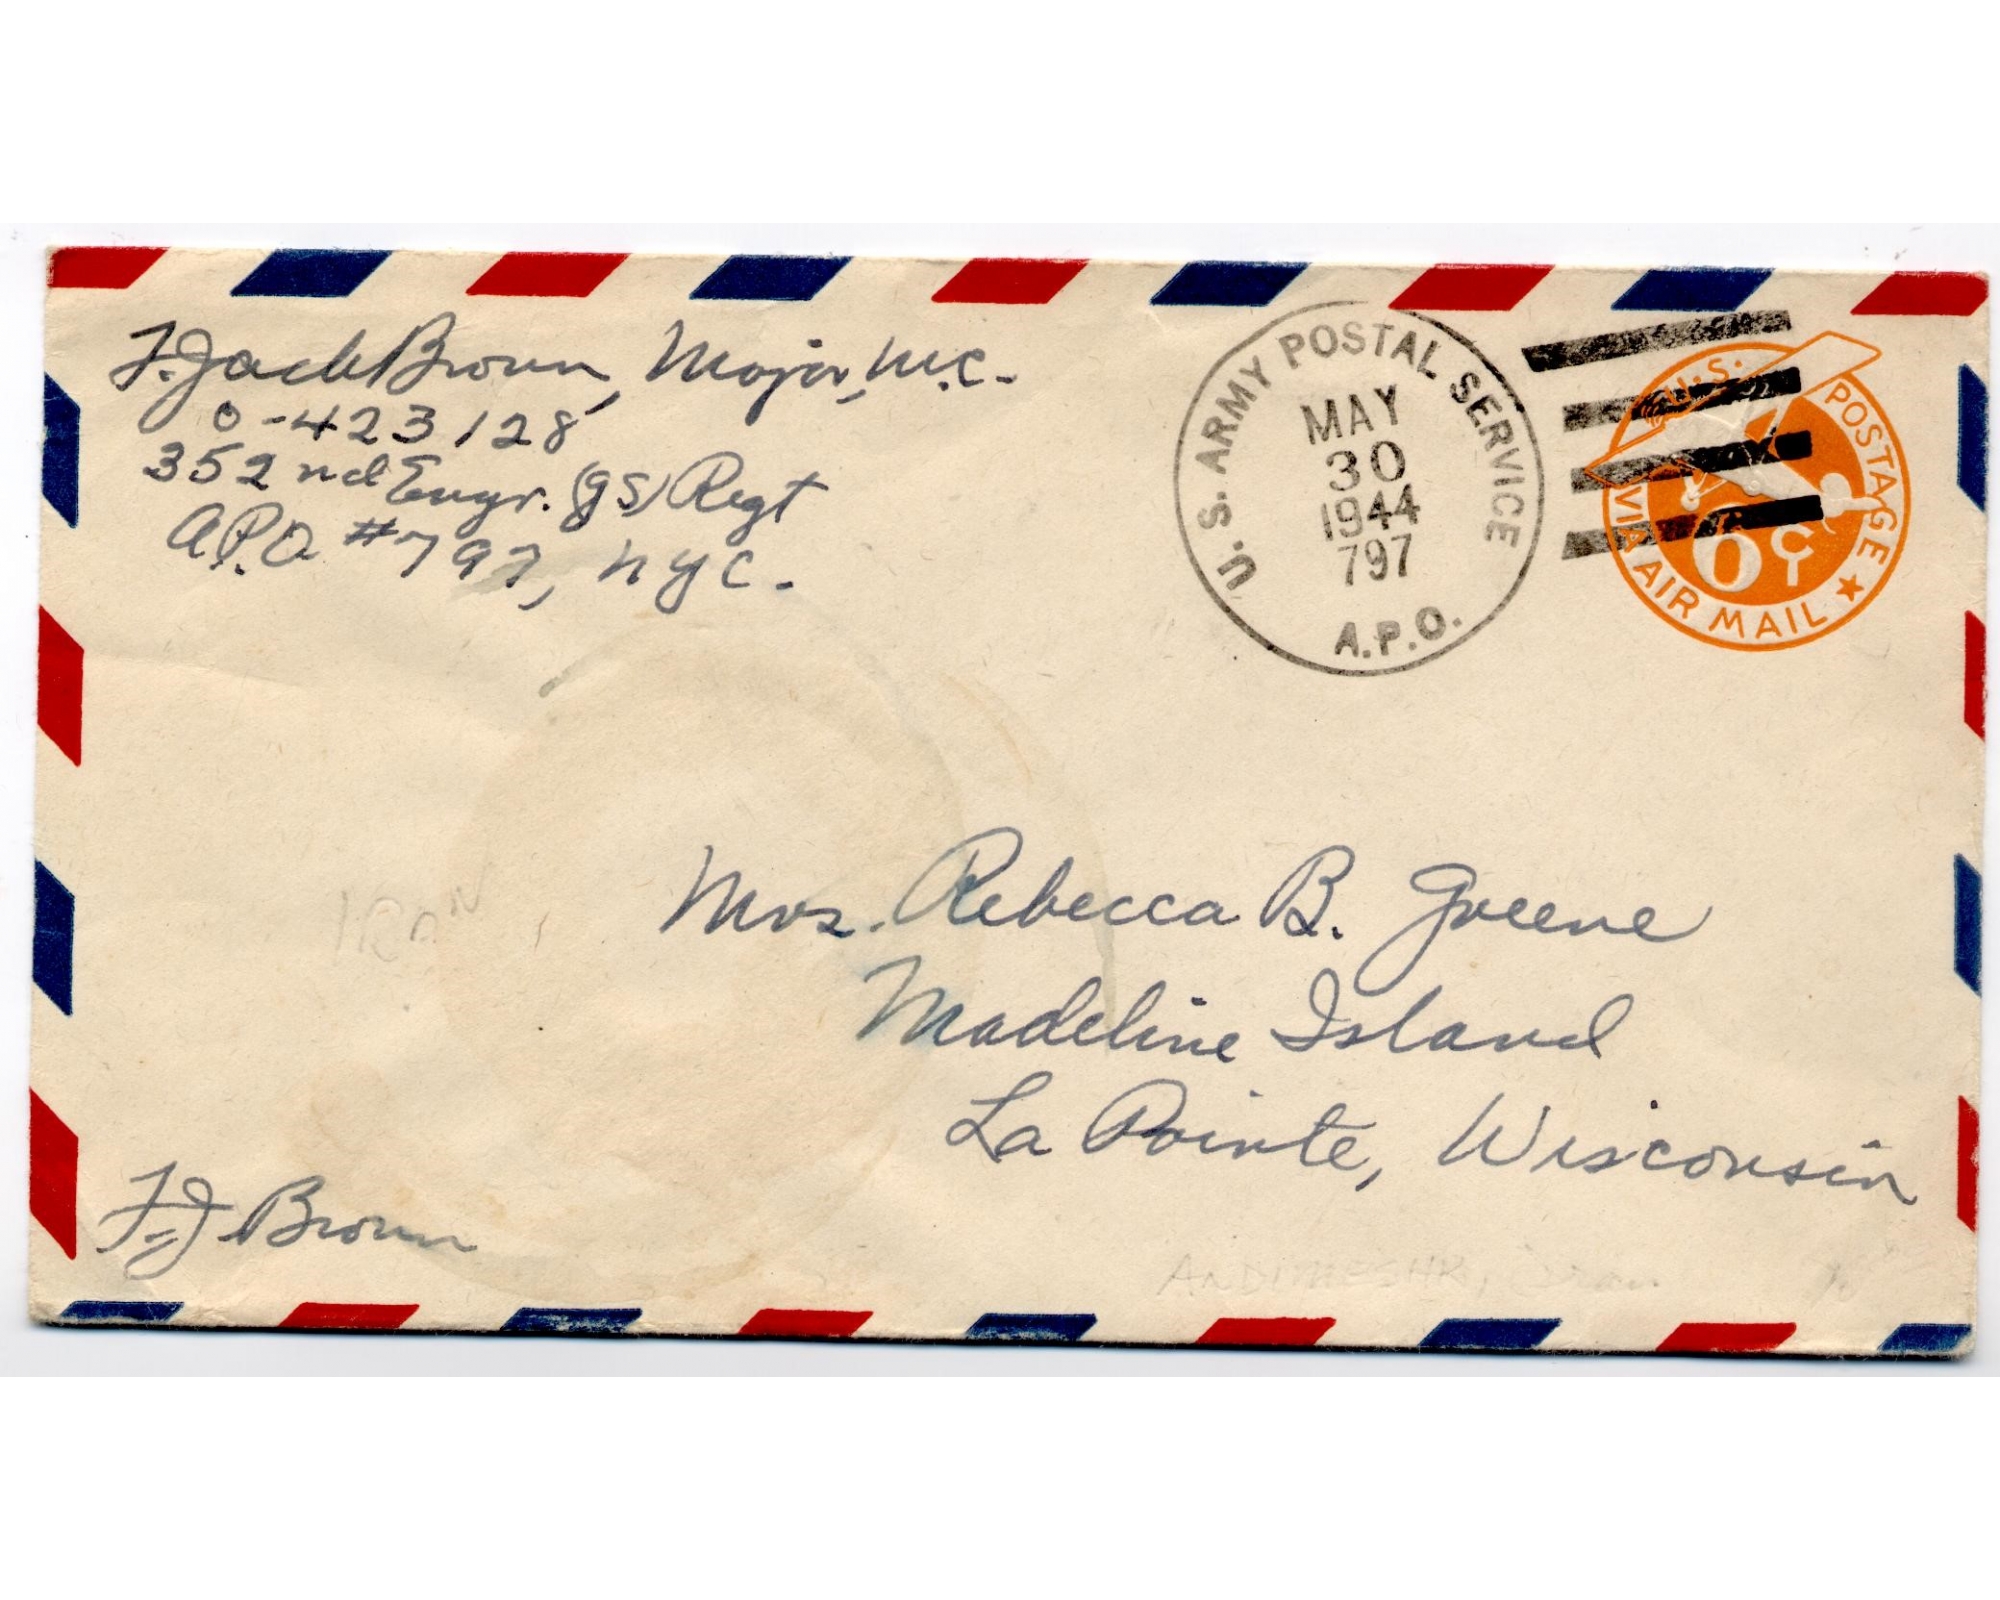 F. Jack Brown, Major, M.C.
0-423128
352nd Engr. (GS) Regt
A.P.O. #797, NYC.
U. S. ARMY POSTAL SERVICE
MAY
30
1944
797
A.P.O.
U.S. POSTAGE
6¢
VIA AIR MAIL
Mrs. Rebecca B. Greene
Madeline Island
La Pointe, Wisconsin
IRAN
F. J. Brown
ANDIMESHK, Iran